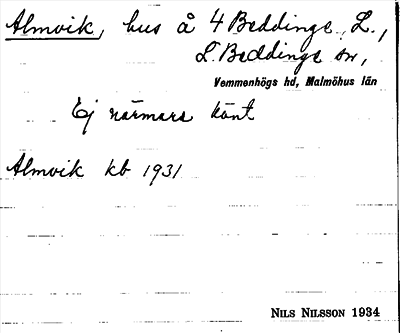 Almvik, hus å 4 Beddinge, L.,
L. Beddinge sn,
Vemmenhögs hd, Malmöhus län
Ej närmare känt
Almvik kb 1931
NILS NILSSON 1934